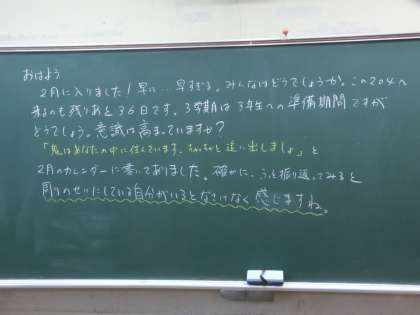 おはよう
2月に入りました!早い…早すぎる。みんなはどうでしょうか。この204へ
来るのも残りあと36日です。3学期は3年生への準備期間ですが
どうでしょう。意識は高まっていますか?
「鬼はあなたの中に住んでいます。ちゃんと追い出しましょ」と
2月のカレンダーに書いてありました。確かに、ふっと振り返ってみると
周りのせいにしている自分がいるとなさけなく感じますね。